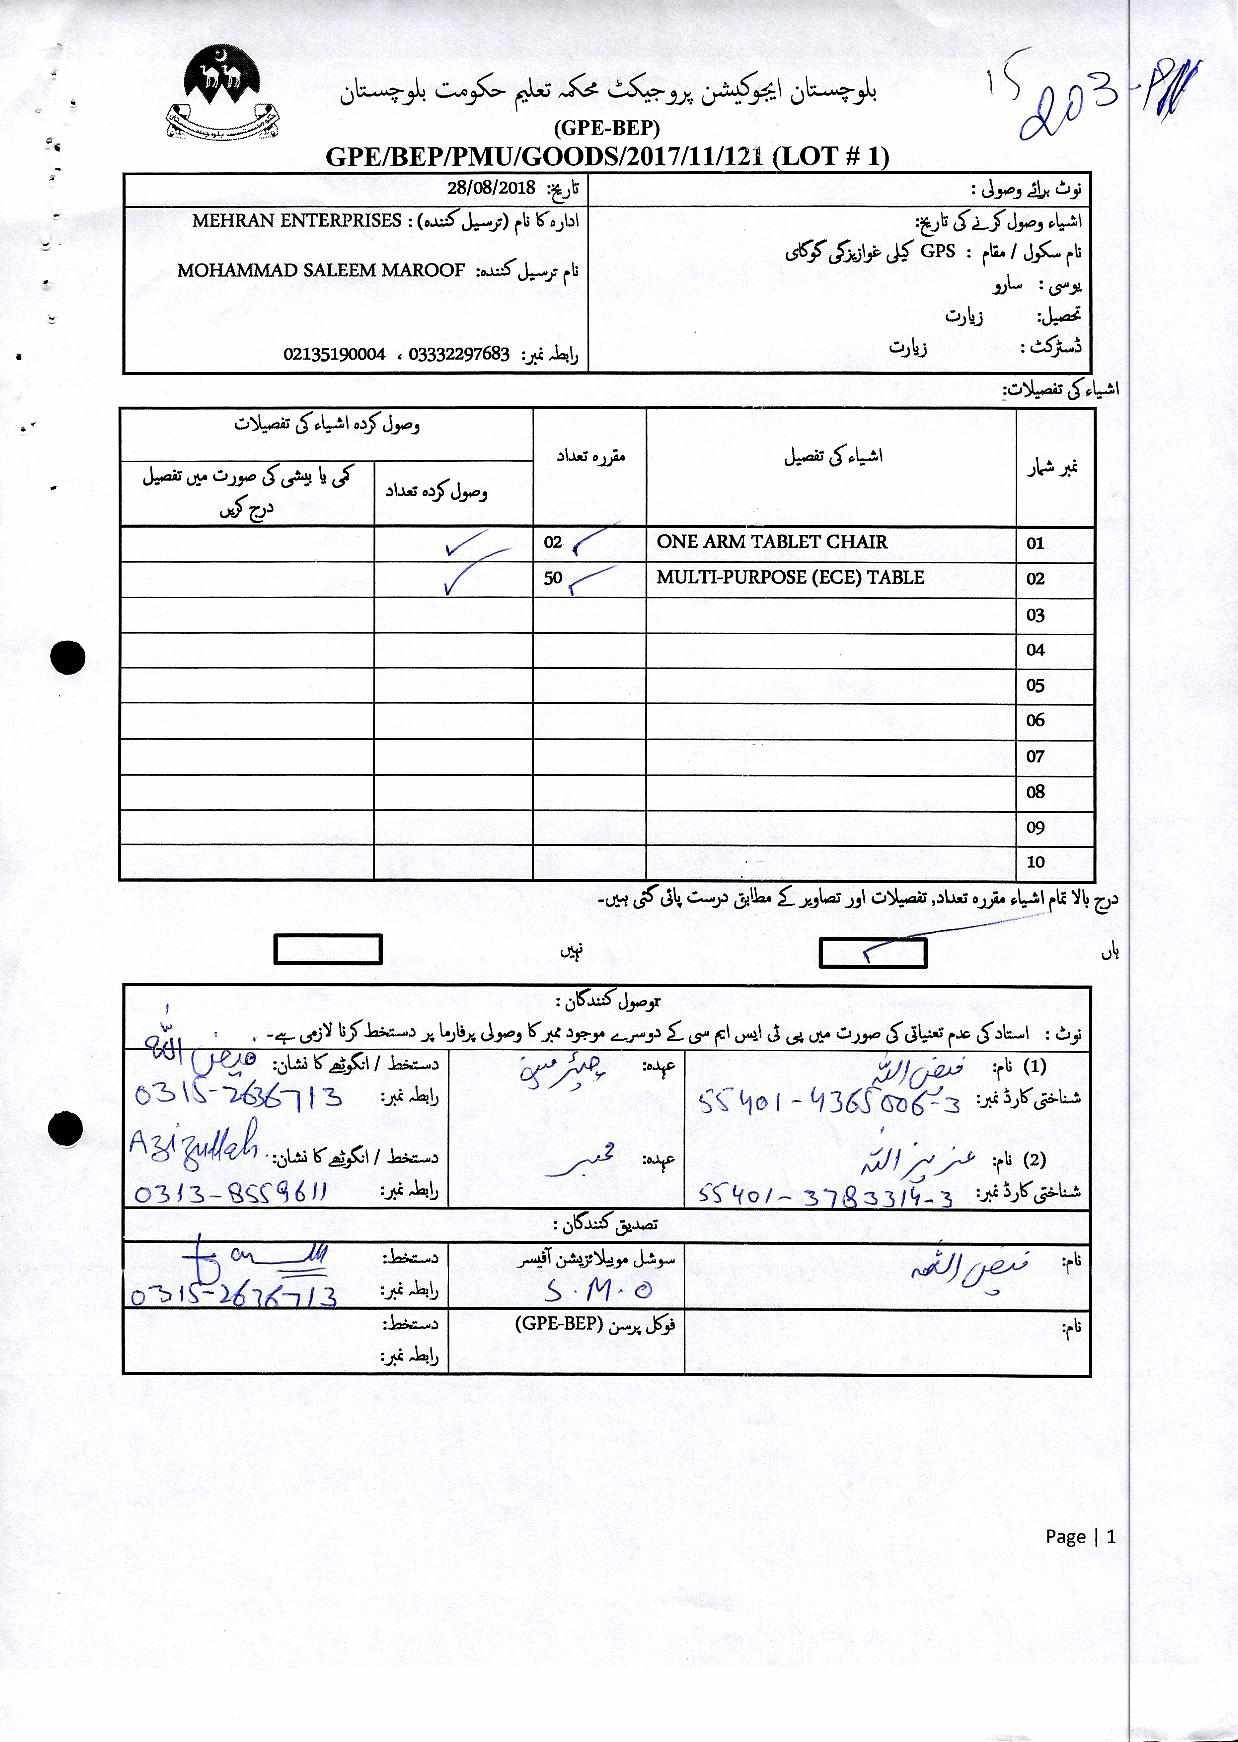 15
203-PM
بلوچستان ایجوکیشن پروجیکٹ محکمہ تعلیم حکومت بلوچستان
(GPE-BEP)
GPE/BEP/PMU/GOODS/2017/11/121 (LOT # 1)
نوٹ برائے وصولی :
تاریخ: 28/08/2018
اشیاء وصول کرنے کی تاریخ:
نام سکول / مقام : GPS کیلی غوازیزکی کوکای
یوسی : سارو
تحصیل: زیارت
ڈسٹرکٹ : زیارت
ادارہ کا نام (ترسیل کنندہ) : MEHRAN ENTERPRISES
نام ترسیل کنندہ: MOHAMMAD SALEEM MAROOF
رابطہ نمبر: 03332297683 ، 02135190004
اشیاء کی تفصیلات:
نمبر شمار
اشیاء کی تفصیل
مقررہ تعداد
وصول کردہ اشیاء کی تفصیلات
وصول کردہ تعداد
کمی یا بیشی کی صورت میں تفصیل
درج کریں
01 ONE ARM TABLET CHAIR 02 ✓ ✓
02 MULTI-PURPOSE (ECE) TABLE 50 ✓ ✓
03
04
05
06
07
08
09
10
درج بالا تمام اشیاء مقررہ تعداد, تفصیلات اور تصاویر کے مطابق درست پائی گئی ہیں۔
ہاں ✓ نہیں
وصول کنندگان :
نوٹ : استاد کی عدم تعیناتی کی صورت میں پی ٹی ایس ایم سی کے دوسرے موجود ممبر کا وصولی پرفارما پر دستخط کرنا لازمی ہے۔
(1) نام: فیض اللہ
شناختی کارڈ نمبر: 55401-4365006-3
عہدہ: چیئرمین
دستخط / انگوٹھے کا نشان: فیض اللہ
رابطہ نمبر: 0315-2636713
(2) نام: عزیز اللہ
شناختی کارڈ نمبر: 55401-3783314-3
عہدہ: ممبر
دستخط / انگوٹھے کا نشان: Azizullah
رابطہ نمبر: 0313-8559611
تصدیق کنندگان :
نام: فیض اللہ
سوشل موبیلائزیشن آفیسر
S.M.O
دستخط:
رابطہ نمبر: 0315-2636713
نام:
فوکل پرسن (GPE-BEP)
دستخط:
رابطہ نمبر:
Page | 1